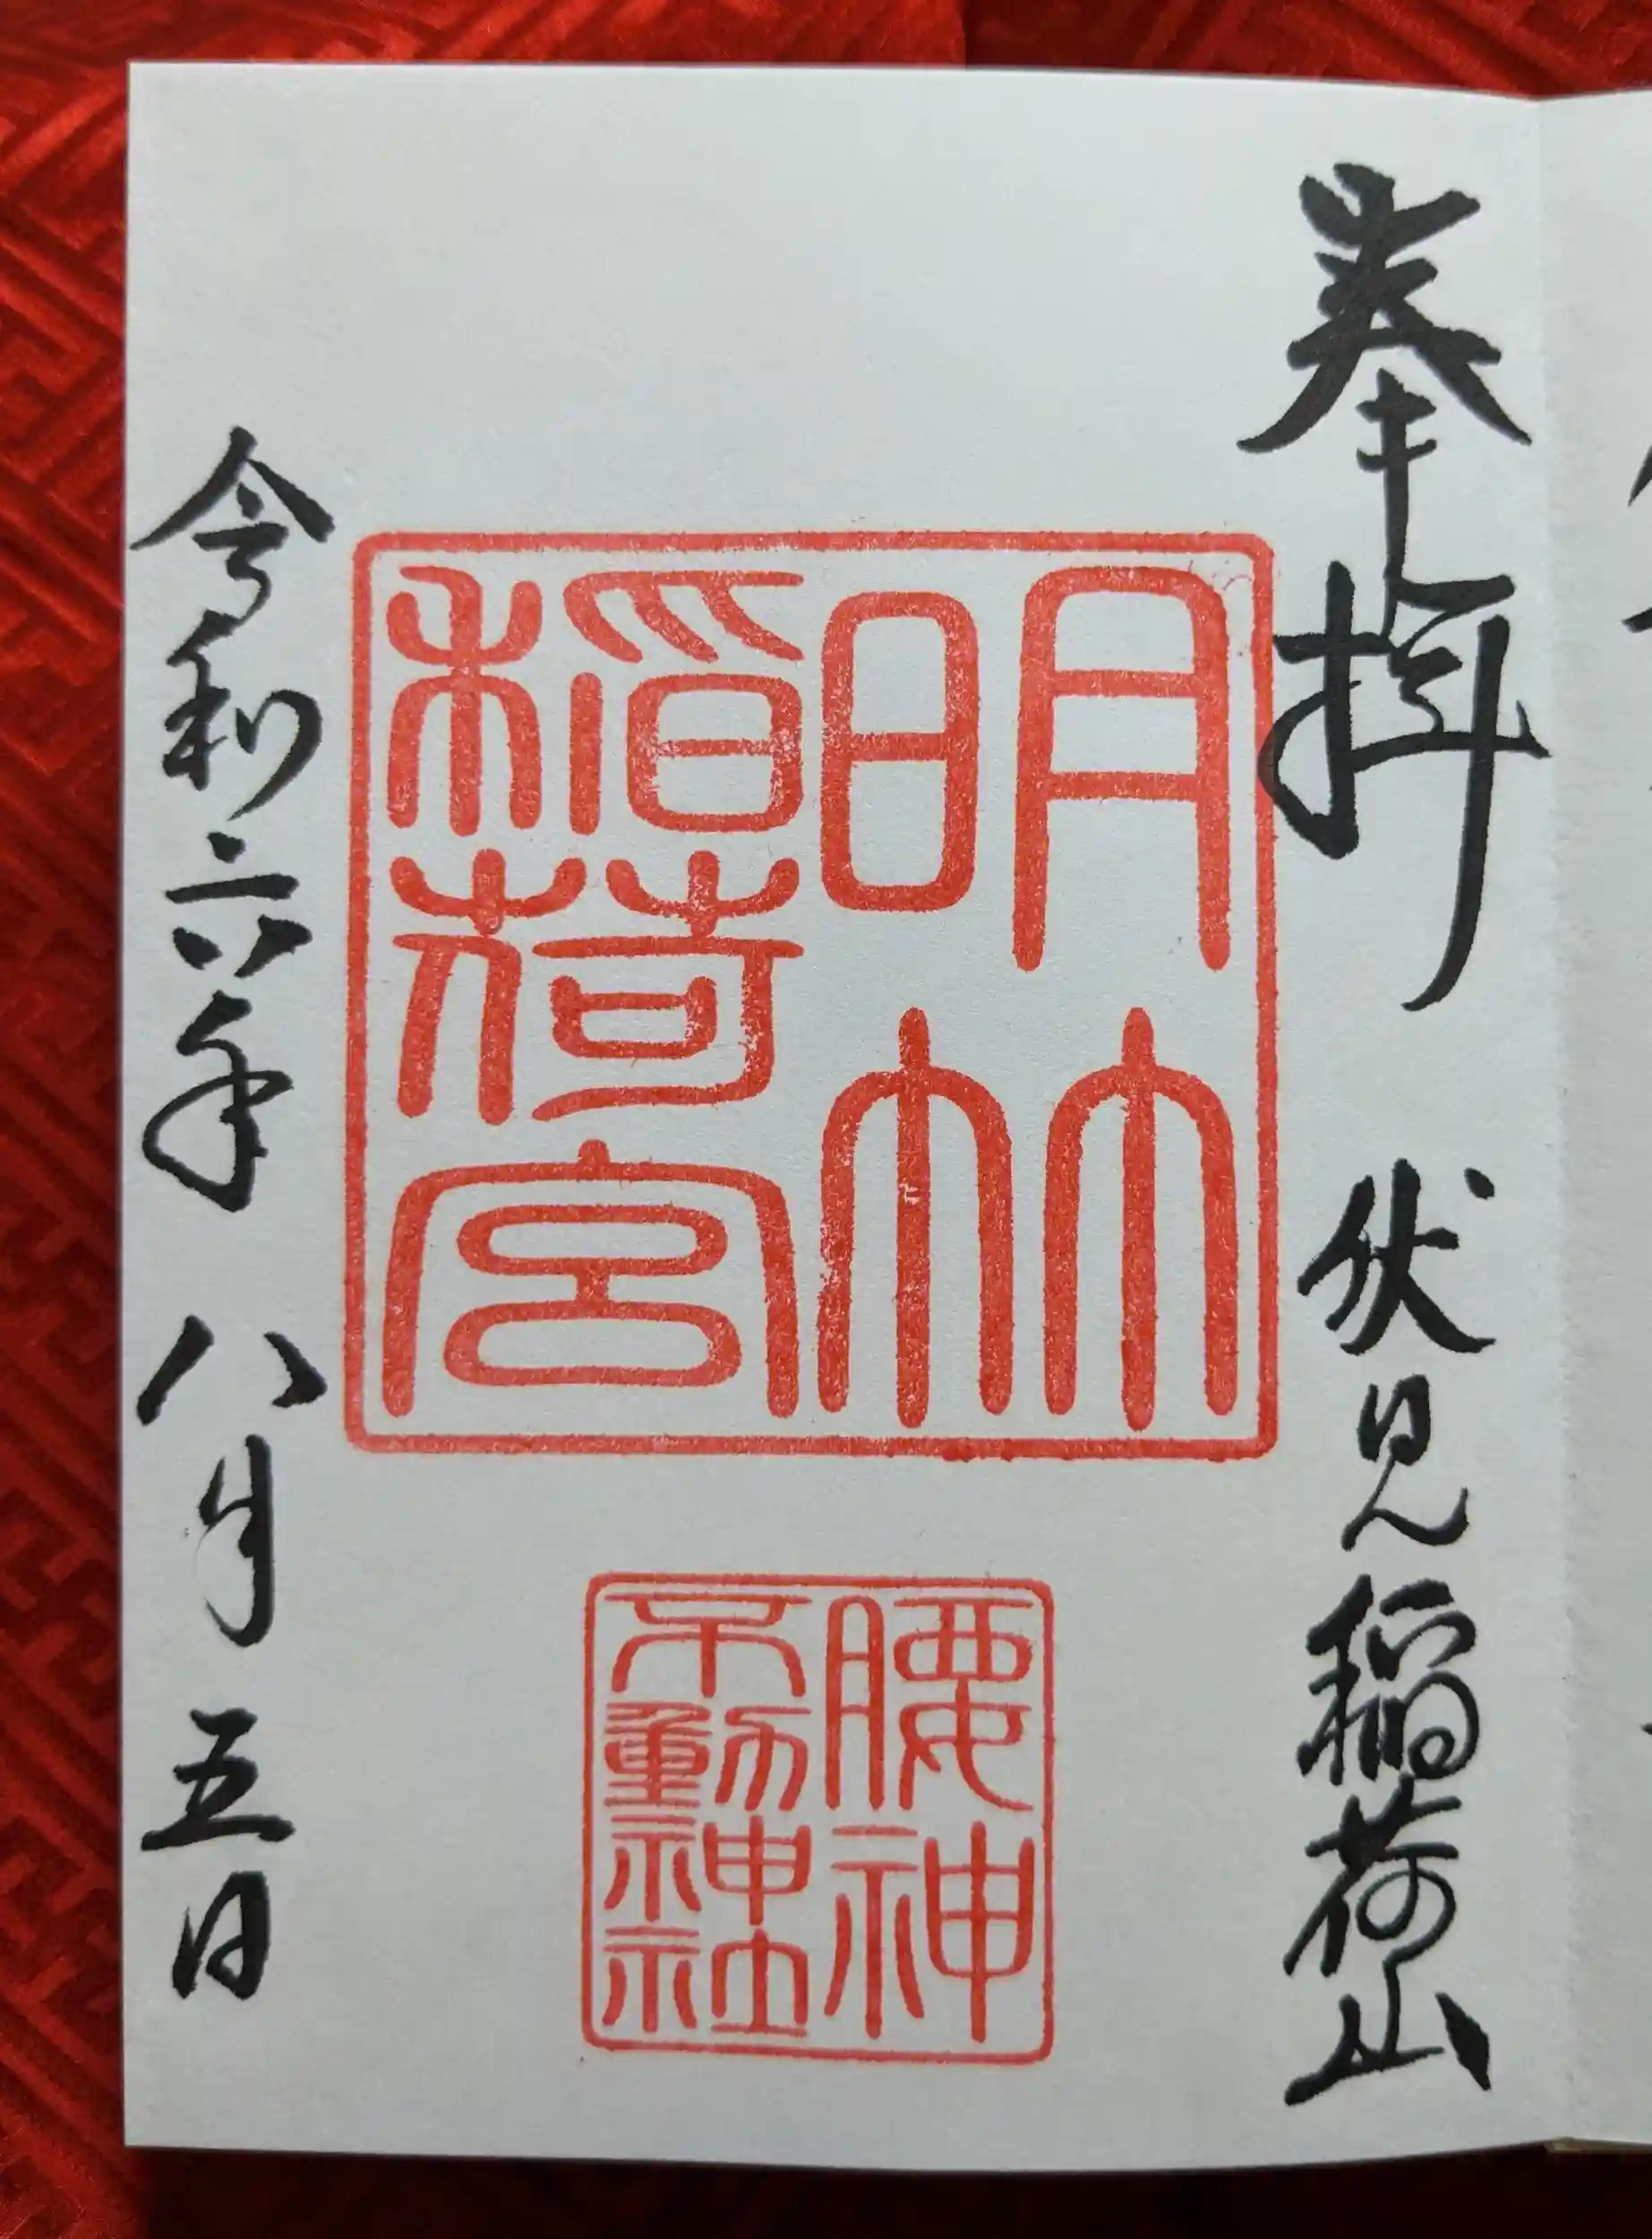 奉拝 伏見稲荷山
明竹
稲荷宮
腰神
不動神社
令和六年 八月 五日